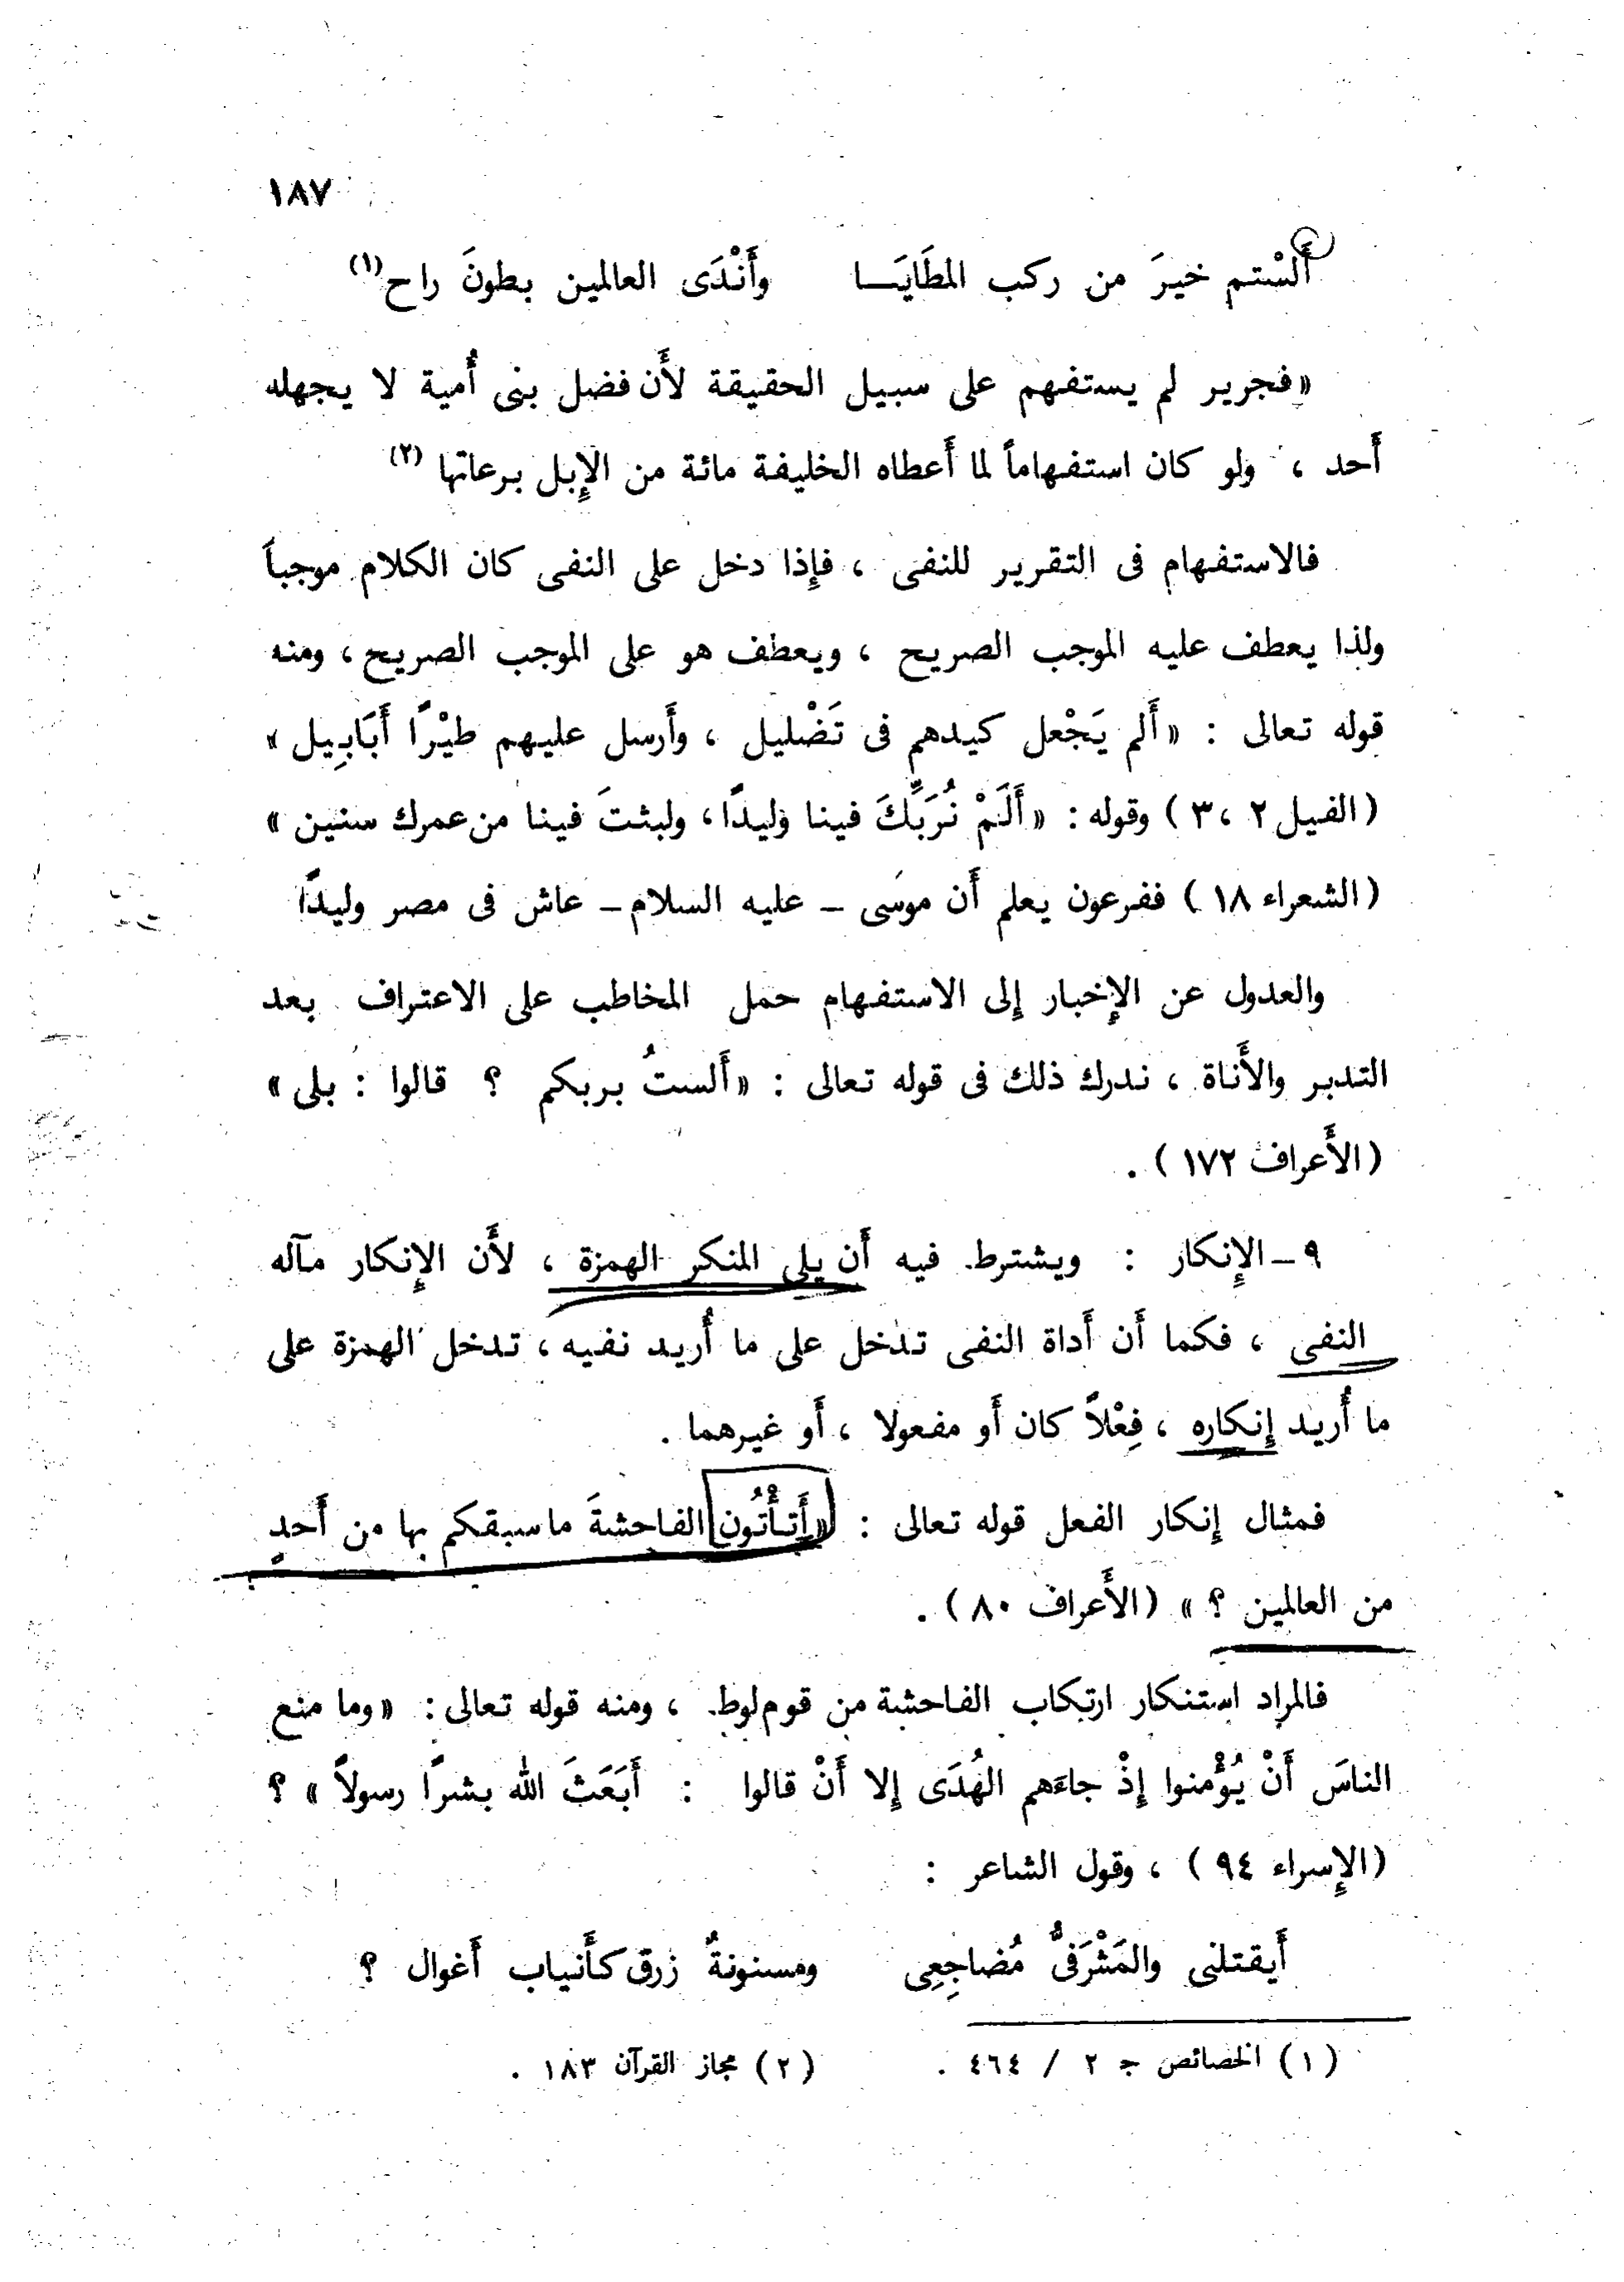 ١٨٧
أَلسْتم خيرَ من ركب المطَايَــا وأَنْدَى العالمين بطونَ راح (١)
« فجرير لم يستفهم على سبيل الحقيقة لأَن فضل بنى أُمية لا يجهله
أَحد ، ولو كان استفهاماً لما أَعطاه الخليفة مائة من الإِبل برعاتها (٢)
فالاستفهام فى التقرير للنفى ، فإِذا دخل على النفى كان الكلام موجباً
ولذا يعطف عليه الموجب الصريح ، ويعطف هو على الموجب الصريح ، ومنه
قوله تعالى : « أَلم يَجْعل كيدهم فى تَضْليل ، وأَرسل عليهم طيْرًا أَبَابِيل »
( الفيل ٢ ، ٣ ) وقوله : « أَلَمْ نُرَبِّكَ فينا وَليدًا ، ولبثتَ فينا من عمرك سنين »
( الشعراء ١٨ ) ففرعون يعلم أَن موسَى – عليه السلام – عاش فى مصر وليدًا
والعدول عن الإِخبار إِلى الاستفهام حمل المخاطب على الاعتراف بعد
التدبر والأَناة ، ندرك ذلك فى قوله تعالى : « أَلستُ بربكم ؟ قالوا : بلى »
( الأَعراف ١٧٢ ) .
٩ – الإِنكار : ويشترط فيه أَن يلى المنكر الهمزة ، لأَن الإِنكار مآله
النفى ، فكما أَن أَداة النفى تدخل على ما أُريد نفيه ، تدخل الهمزة على
ما أُريد إِنكاره ، فِعْلاً كان أَو مفعولا ، أَو غيرهما .
فمثال إِنكار الفعل قوله تعالى : « أَتأْتُون الفاحشةَ ما سبقكم بها من أَحدٍ
من العالمين ؟ » ( الأَعراف ٨٠ ) .
فالمراد استنكار ارتكاب الفاحشة من قوم لوط ، ومنه قوله تعالى : « وما منع
الناسَ أَنْ يُؤْمنوا إِذْ جاءَهم الهُدَى إِلا أَنْ قالوا : أَبَعَثَ الله بشرًا رسولاً » ؟
( الإِسراء ٩٤ ) ، وقول الشاعر :
أَيقتلنى والمَشْرَفىُّ مُضاجِعِى ومسنونةٌ زرق كأَنياب أَغوال ؟
( ١ ) الخصائص ج ٢ / ٤٦٤ . ( ٢ ) مجاز القرآن ١٨٣ .